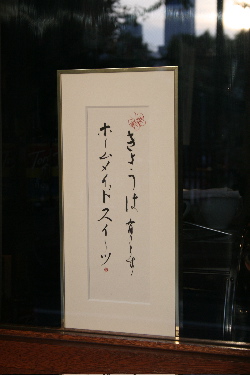 きょうは有ります!
ホームメイドスイーツ